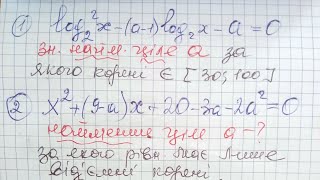 ① log₂²x-(a-1)log₂x-a=0
зн. найм. ціле a за
якого корені ∈ [30;100]
② x²+(9-a)x+20-3a-2a²=0
найменше ціле a-?
за якого рівн. має лише
від'ємні корені